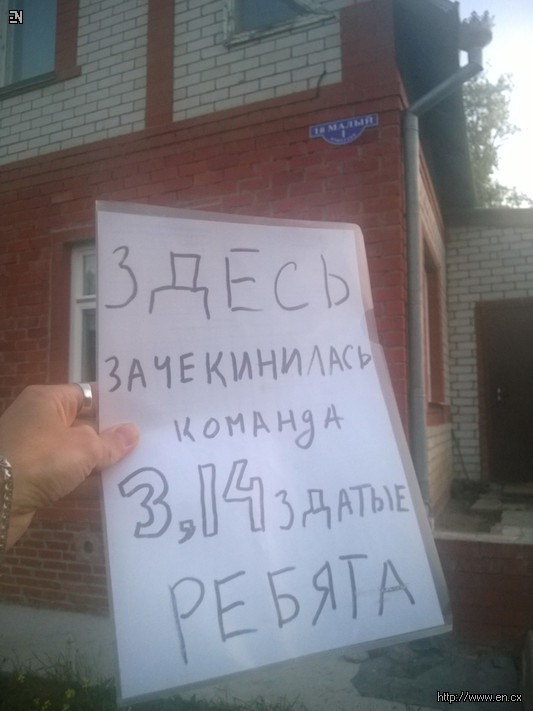 EN
18 МАЛЫЙ
1
ЗДЕСЬ
ЗАЧЕКИНИЛАСЬ
КОМАНДА
3,14ЗДАТЫЕ
РЕБЯТА
http://www.en.cx